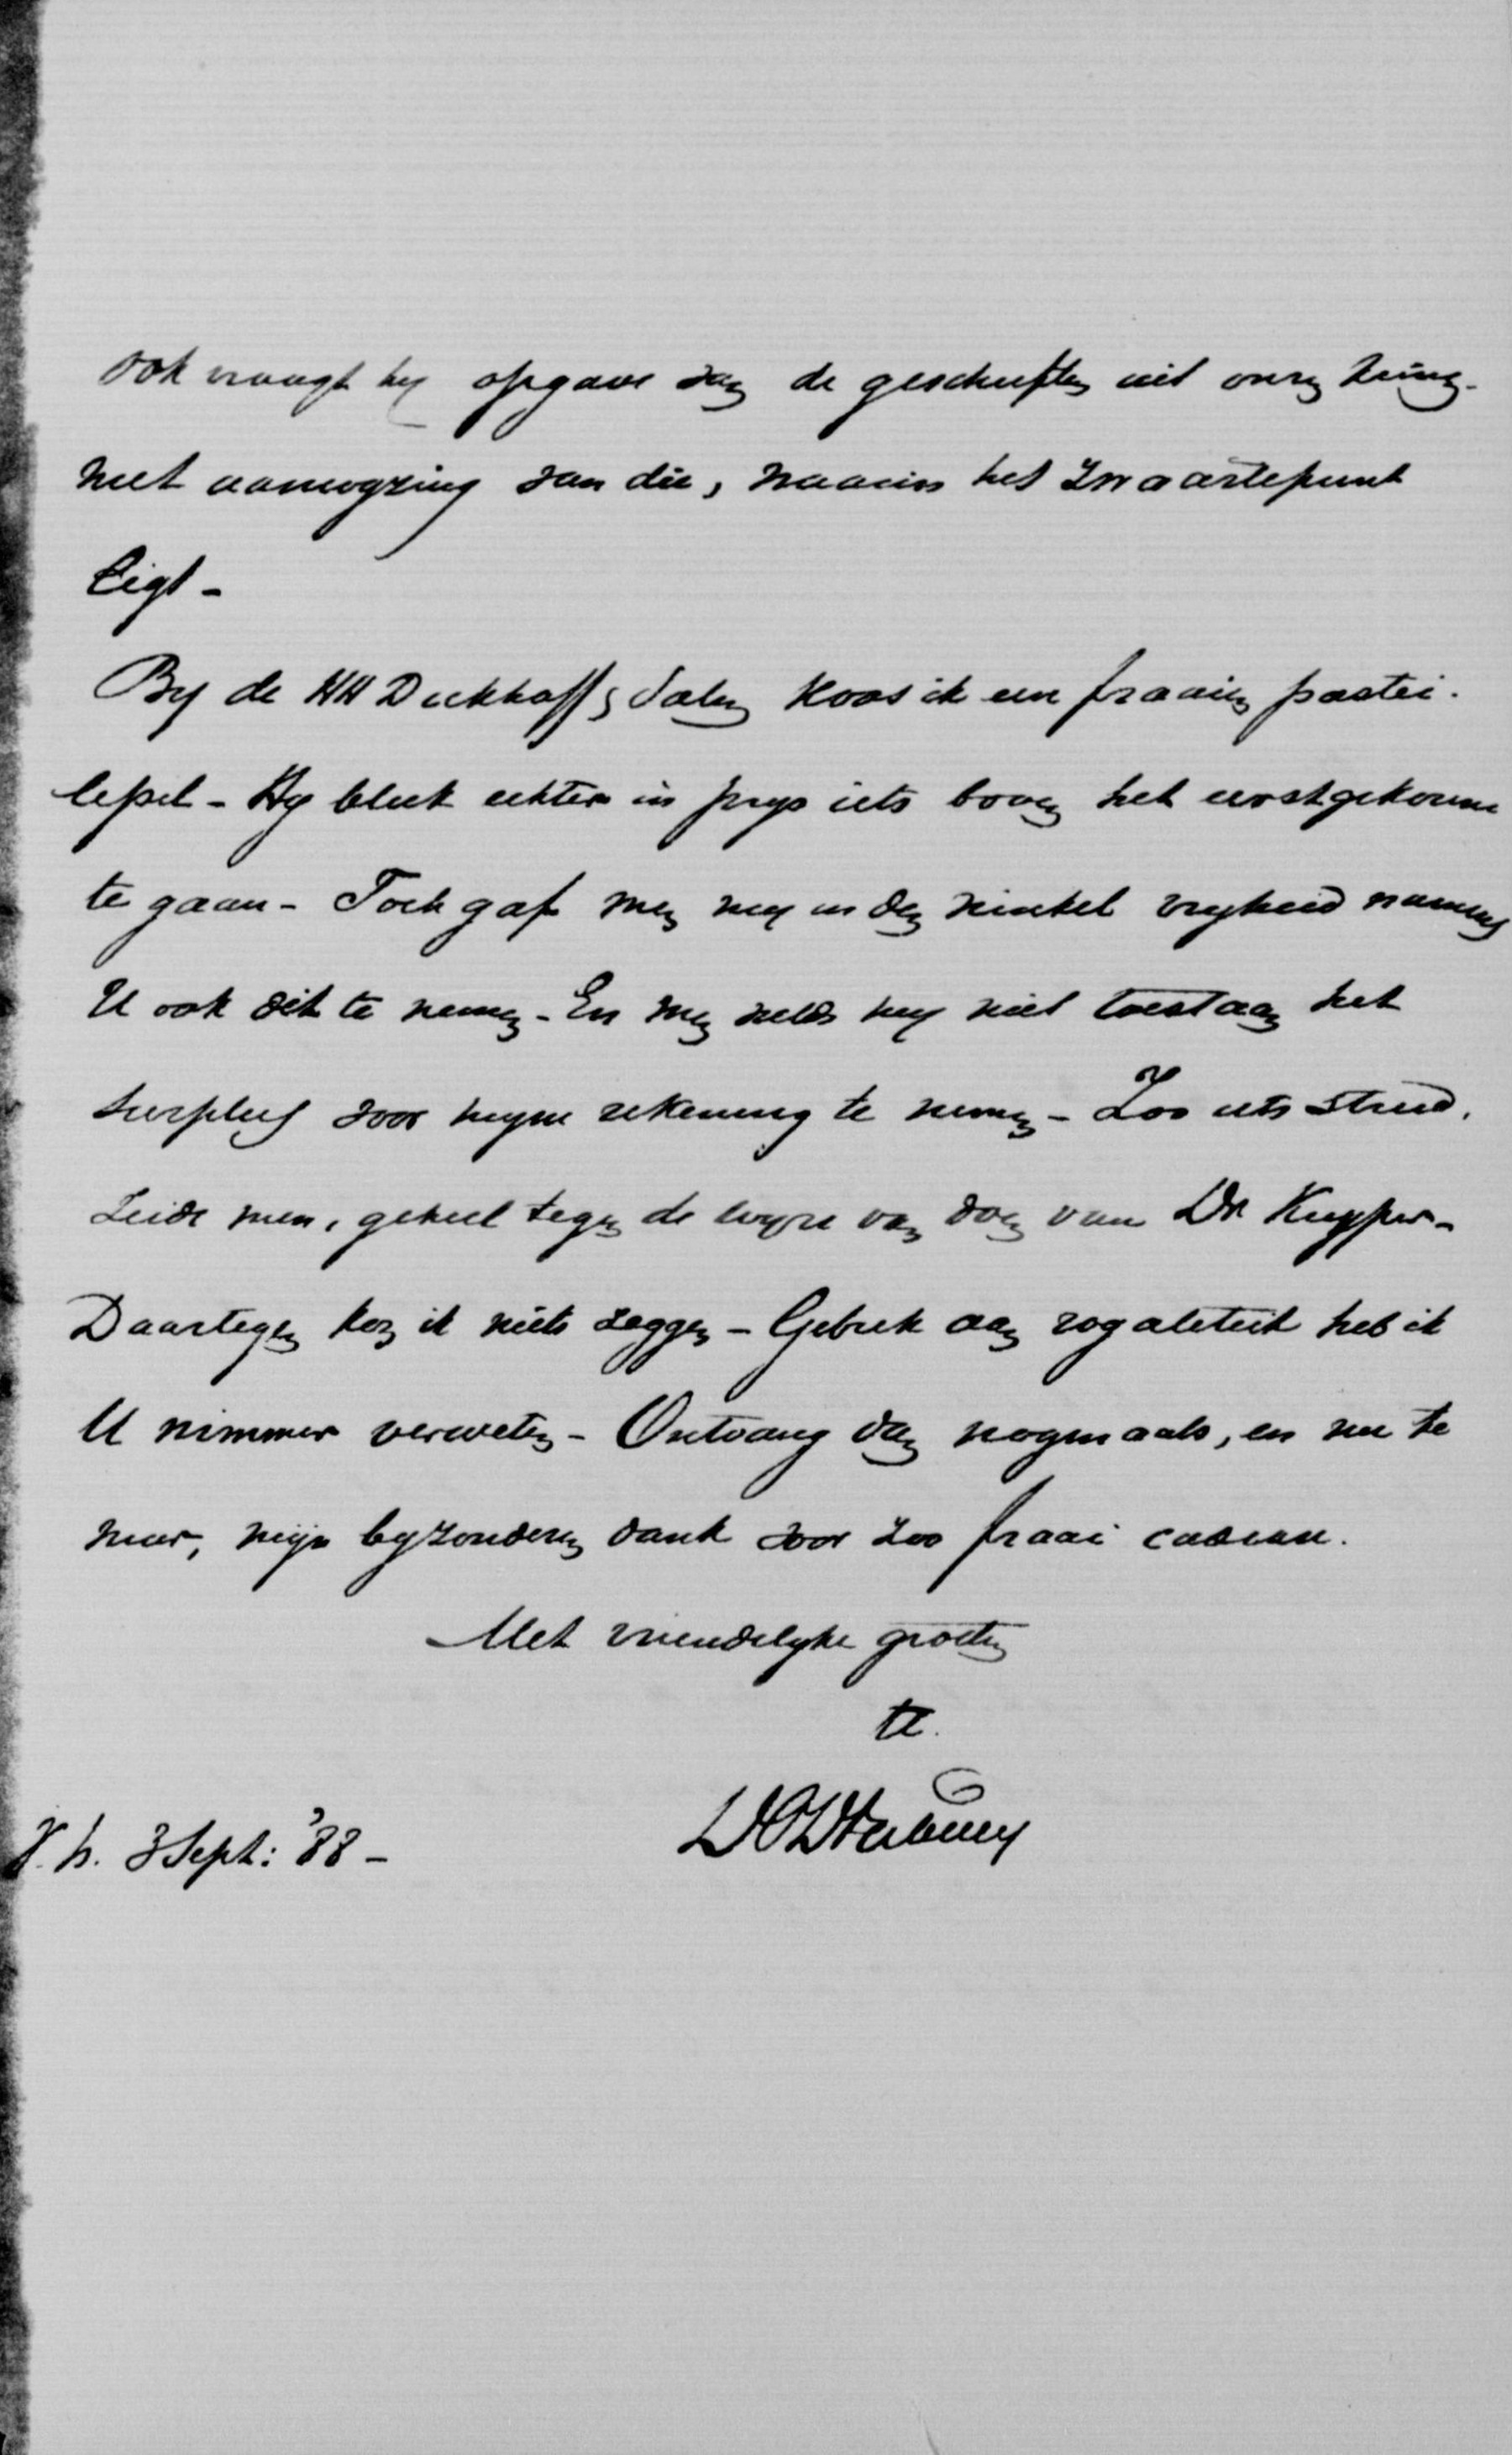 Ook vraagt hy opgave van de geschriften uit onzen kring.
met aanwyzing van die, waarin het zwaartepunt
ligt -
By de HH Diekhoff & Salm koos ik een fraaien pastei.
lepel - Hy bleek echter in prys iets boven het eerstgekozene
te gaan - Toch gaf men my in den winkel vryheid namens
U ook dit te nemen - En men wilde my niet toestaan het
surplus voor myne rekening te nemen - Zoo iets streed,
zeide men, geheel tegen de wyze van doen van Dr Kuyper -
Daartegen kon ik niets zeggen - Gebrek aan royaliteit heb ik
U nimmer verweten - Ontvang dan nogmaals, en nu te
meer, mijn byzonderen dank voor zoo fraai cadeau.
Met vriendelyke groeten
tt.
3 Sept: '88 -